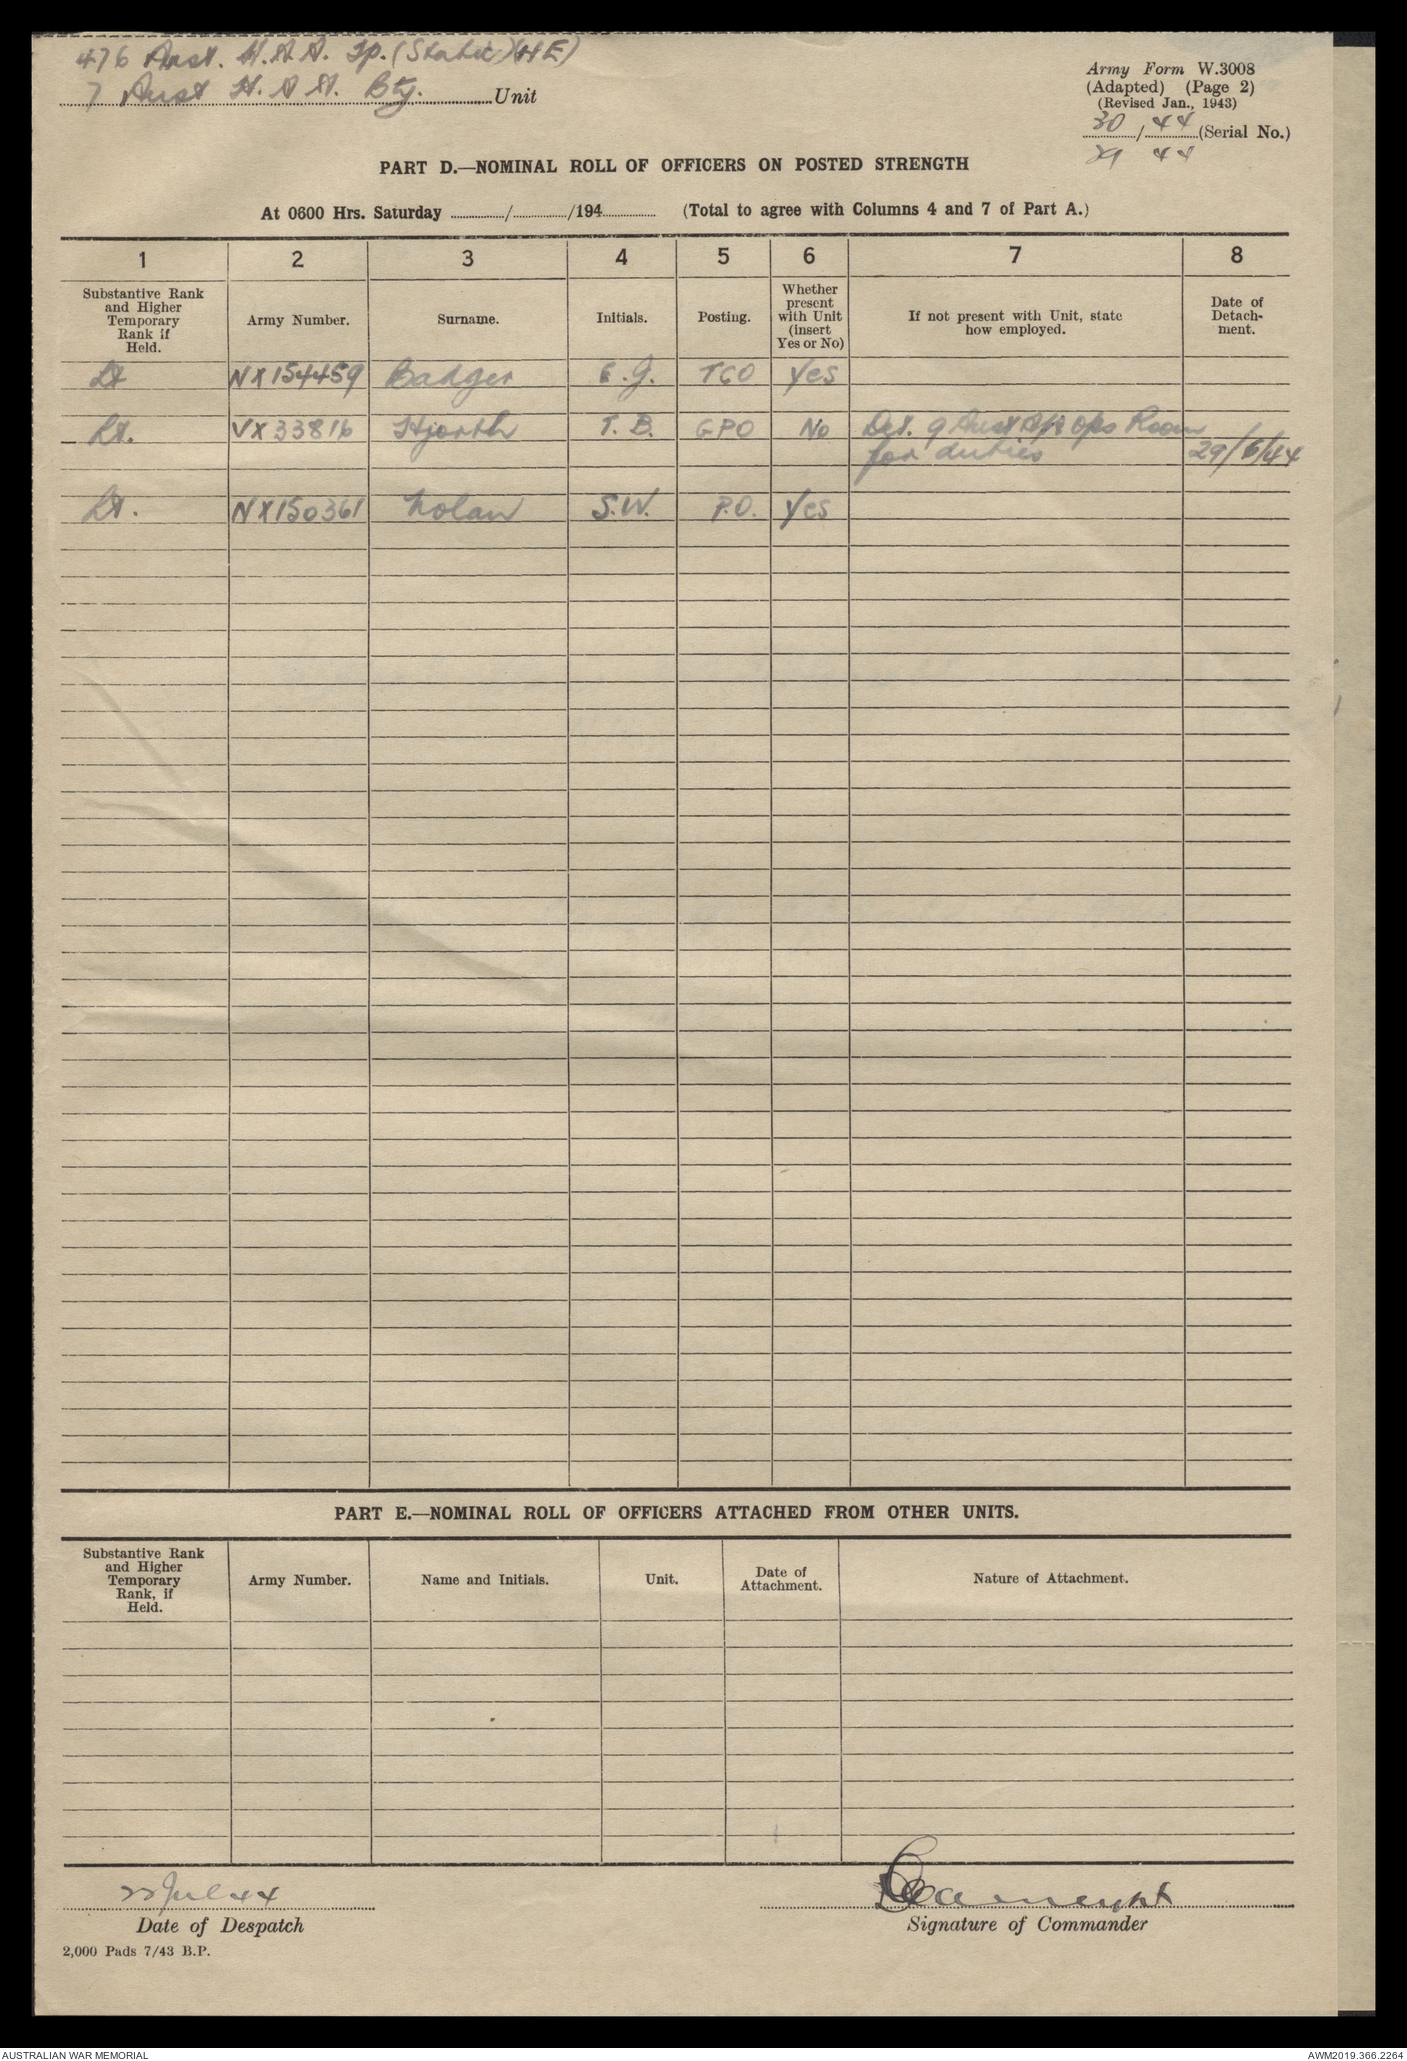 476 Aust. H.A.A. Tp. (Static)(HE)
7 Aust H.A.A. Bty. Unit
Army Form W.3008
(Adapted) (Page 2)
(Revised Jan., 1943)
30 / 44 (Serial No.)
29 44
PART D.—NOMINAL ROLL OF OFFICERS ON POSTED STRENGTH
At 0600 Hrs. Saturday ............/............/194............ (Total to agree with Columns 4 and 7 of Part A.)
1 2 3 4 5 6 7 8
Substantive Rank and Higher Temporary Rank if Held. Army Number. Surname. Initials. Posting. Whether present with Unit (insert Yes or No) If not present with Unit, state how employed. Date of Detach-ment.
Lt NX154459 Badger E.J. TCO Yes
Lt. VX33816 Hjorth T.B. GPO No Det. 9 Aust Ops Room
for duties 29/6/44
Lt. NX150361 Nolan S.W. P.O. Yes
PART E.—NOMINAL ROLL OF OFFICERS ATTACHED FROM OTHER UNITS.
Substantive Rank and Higher Temporary Rank, if Held. Army Number. Name and Initials. Unit. Date of Attachment. Nature of Attachment.
22 Jul 44
Date of Despatch
Signature of Commander
2,000 Pads 7/43 B.P.
AUSTRALIAN WAR MEMORIAL
AWM2019.366.2264